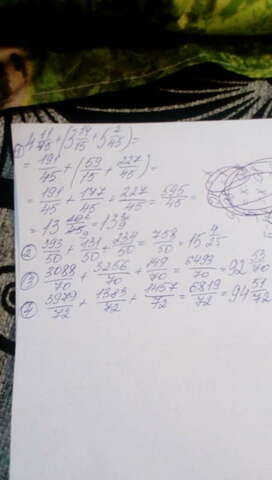 ① 4 11/45 + (3 14/15 + 5 2/45) =
= 191/45 + (59/15 + 227/45) =
= 191/45 + 177/45 + 227/45 = 595/45 =
= 13
② 393/50 + 131/50 + 234/50 = 758/50 = 15 4/25
③ 3088/70 + 3256/70 + 149/70 = 6493/70 = 92 53/70
④ 3979/72 + 1383/72 + 1457/72 = 6819/72 = 94 51/72